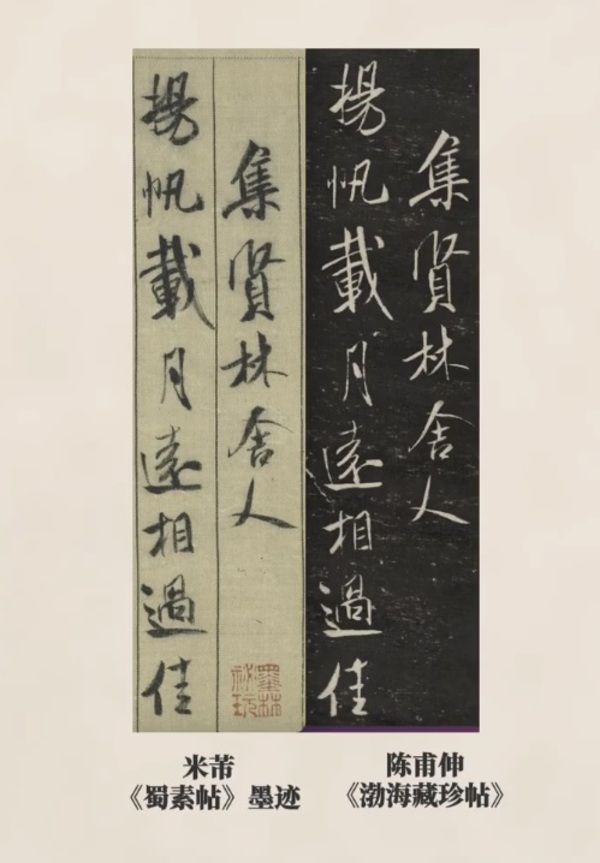 集賢林舍人
揚帆載月遠相過佳
墨林
祕玩
集賢林舍人
揚帆載月遠相過佳
米芾
《蜀素帖》墨迹
陈甫伸
《渤海藏珍帖》